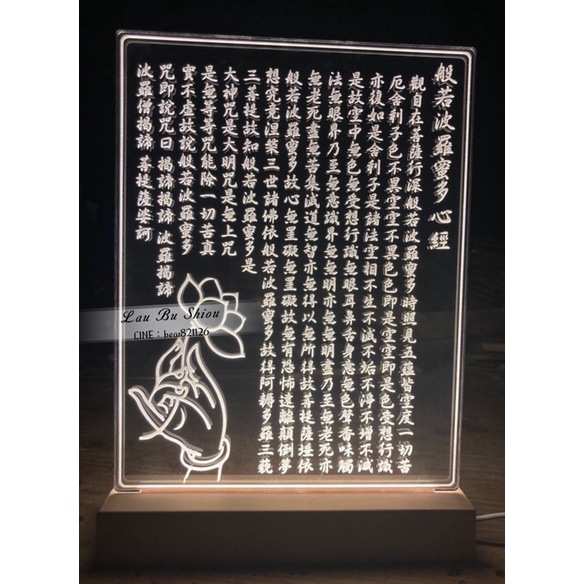 般若波羅蜜多心經
觀自在菩薩行深般若波羅蜜多時照見五蘊皆空度一切苦
厄舍利子色不異空空不異色色即是空空即是色受想行識
亦復如是舍利子是諸法空相不生不滅不垢不淨不增不減
是故空中無色無受想行識無眼耳鼻舌身意無色聲香味觸
法無眼界乃至無意識界無無明亦無無明盡乃至無老死亦
無老死盡無苦集滅道無智亦無得以無所得故菩提薩埵依
般若波羅蜜多故心無罣礙無罣礙故無有恐怖遠離顛倒夢
想究竟涅槃三世諸佛依般若波羅蜜多故得阿耨多羅三藐
三菩提故知般若波羅蜜多是
大神咒是大明咒是無上咒
是無等等咒能除一切苦真
實不虛故說般若波羅蜜多
咒即說咒曰 揭諦揭諦 波羅揭諦
波羅僧揭諦 菩提薩婆訶
Lau Bu Shiou
LINE：bear821126